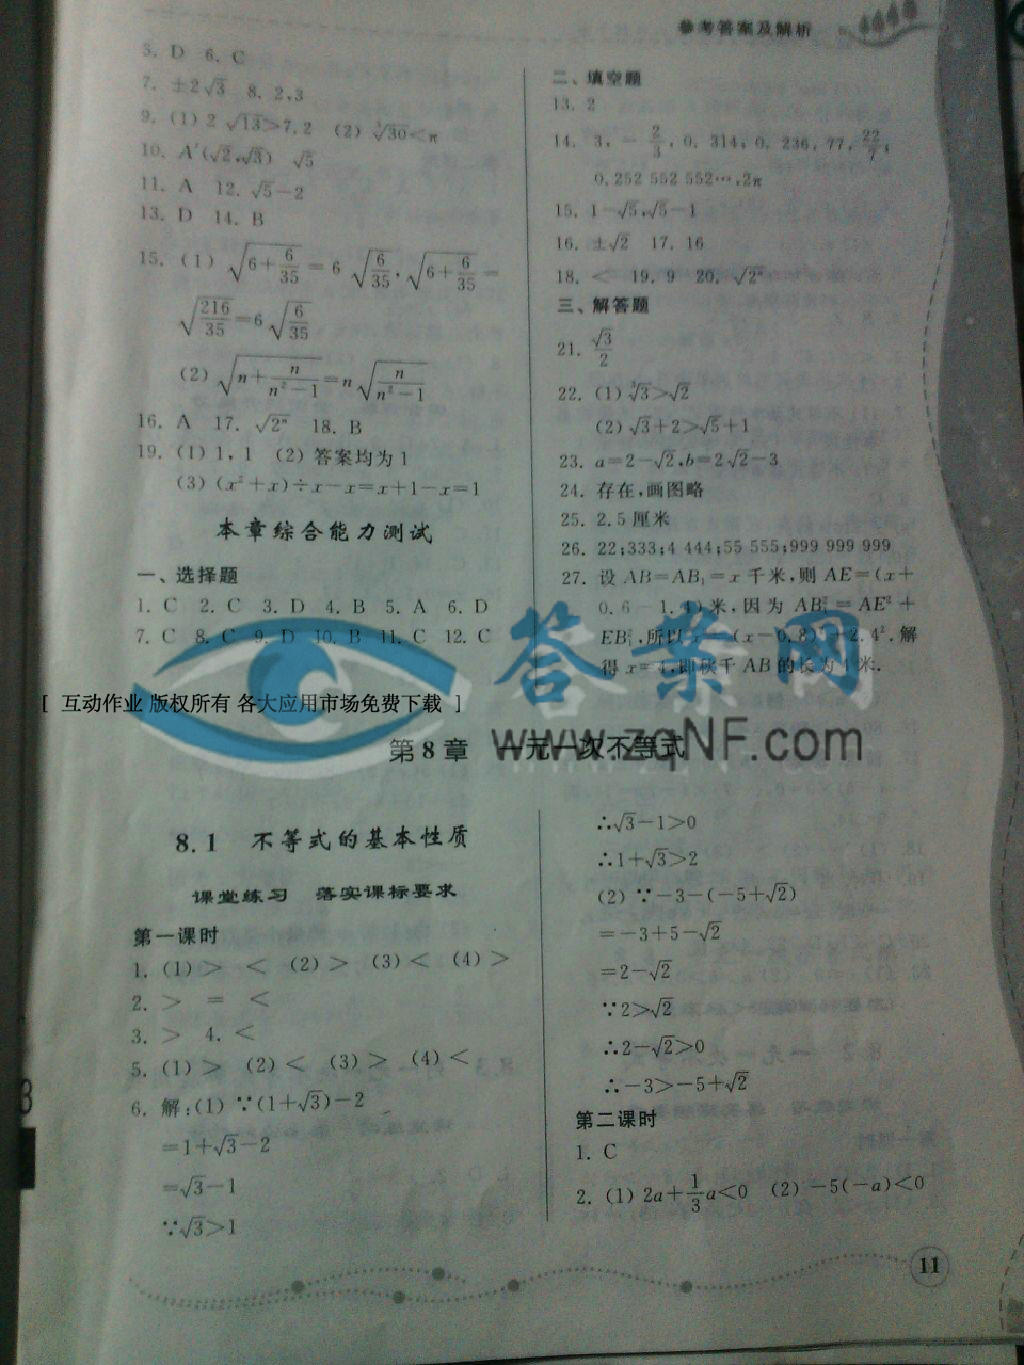 参考答案及解析
5. D 6. C
7. ±2√3 8. 2,3
9. (1) 2√13>7.2 (2) ∛30<π
10. A′(√2,√3) √5
11. A 12. √5-2
13. D 14. B
15. (1) √(6+6/35)=6√(6/35),√(6+6/35)=
√(216/35)=6√(6/35)
(2) √(n+n/(n²-1))=n√(n/(n²-1))
16. A 17. √2ⁿ 18. B
19. (1) 1, 1 (2) 答案均为1
(3) (x²+x)÷x-x=x+1-x=1
本章综合能力测试
一、选择题
1. C 2. C 3. D 4. B 5. A 6. D
7. C 8. C 9. D 10. B 11. C 12. C
二、填空题
13. 2
14. 3, -2/3, 0.314, 0.236, 77, 22/7;
0.252 552 552…,2π
15. 1-√5,√5-1
16. ±√2 17. 16
18. < 19. 9 20. √2ⁿ
三、解答题
21. √3/2
22. (1) ∛3>√2
(2) √3+2>√5+1
23. a=2-√2,b=2√2-3
24. 存在,画图略
25. 2.5厘米
26. 22;333;4 444;55 555;999 999 999
27. 设 AB=AB₁=x 千米,则 AE=(x+
0.6-1.4)米,因为 AB₁²=AE²+
EB₁²,所以 x²=(x-0.8)²+2.4²,解
得 x=4,即秋千 AB 的长为4米.
[ 互动作业 版权所有 各大应用市场免费下载 ]
答案网
www.zqNF.com
第8章 一元一次不等式
8.1 不等式的基本性质
课堂练习 落实课标要求
第一课时
1. (1) > < (2) > (3) < (4) >
2. > = <
3. > 4. <
5. (1) > (2) < (3) > (4) <
6. 解:(1) ∵(1+√3)-2
=1+√3-2
=√3-1
∵√3>1
∴√3-1>0
∴1+√3>2
(2) ∵-3-(-5+√2)
=-3+5-√2
=2-√2
∵2>√2
∴2-√2>0
∴-3>-5+√2
第二课时
1. C
2. (1) 2a+1/3a<0 (2) -5(-a)<0
11